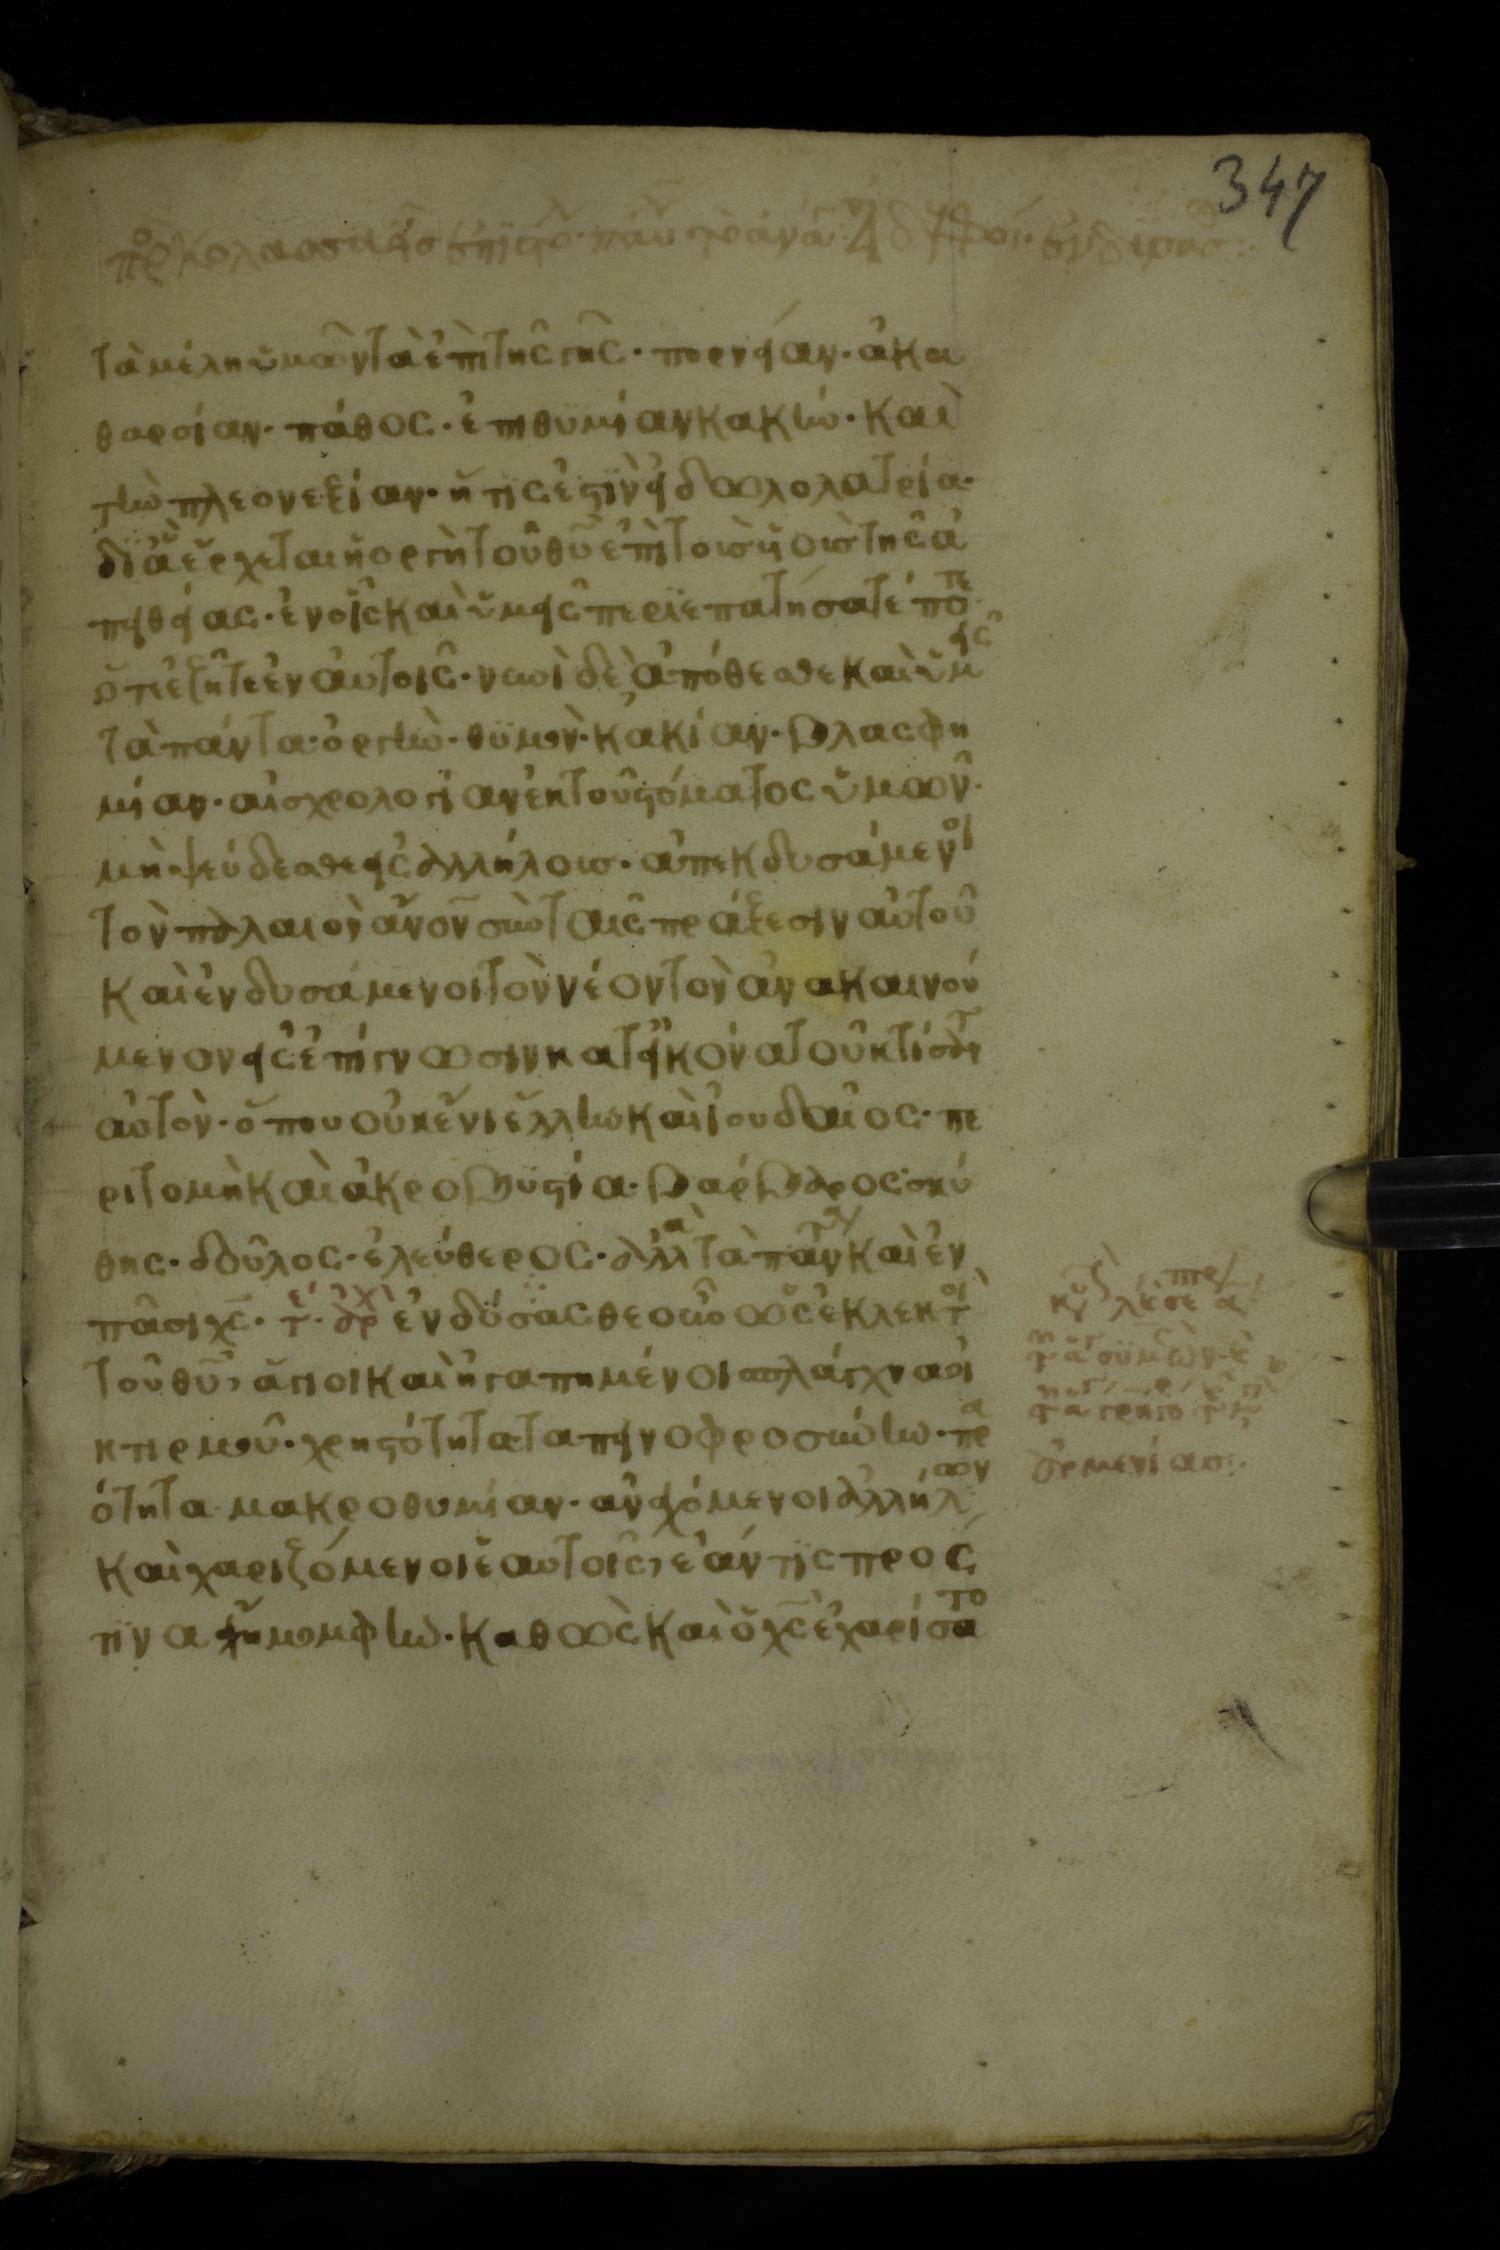 347
τὰ μέλη ὑμῶν τὰ ἐπὶ τῆς γῆς· πορνείαν· ἀκα
θαρσίαν· πάθος· ἐπιθυμίαν κακήν· καὶ
τὴν πλεονεξίαν· ἥτις ἐστὶν εἰδωλολατρία·
δι' ἃ ἔρχεται ἡ ὀργὴ τοῦ θυ ἐπὶ τοὺς υἱοὺς τῆς ἀ
πειθείας· ἐν οἷς καὶ ὑμεῖς περιεπατήσατέ ποτε
ὅτε ἐζῆτε ἐν αὐτοῖς· νυνὶ δὲ ἀπόθεσθε καὶ ὑμεῖς
τὰ πάντα· ὀργήν· θυμὸν· κακίαν· βλασφη
μίαν· αἰσχρολογίαν ἐκ τοῦ στόματος ὑμῶν·
μὴ ψεύδεσθε εἰς ἀλλήλους· ἀπεκδυσάμενοι
τὸν παλαιὸν ἄνον σὺν ταῖς πράξεσιν αὐτοῦ
καὶ ἐνδυσάμενοι τὸν νέον τὸν ἀνακαινού
μενον εἰς ἐπίγνωσιν κατ' εἰκόνα τοῦ κτίσαντ
αὐτὸν· ὅπου οὐκ ἔνι ἕλλην καὶ ἰουδαῖος· πε
ριτομὴ καὶ ἀκροβυστία· βάρβαρος· σκύ
θης· δοῦλος· ἐλεύθερος· ἀλλὰ τὰ πάντα καὶ ἐν
πᾶσι χς· ἐνδύσασθε οὖν ὡς ἐκλεκτοὶ
τοῦ θυ, ἅγιοι καὶ ἠγαπημένοι σπλάγχνα οἰ
κτιρμοῦ· χρηστότητα· ταπεινοφροσύνην· πρα
ότητα· μακροθυμίαν· ἀνεχόμενοι ἀλλήλων
καὶ χαριζόμενοι ἑαυτοῖς, ἐάν τις πρός
τινα ἔχη μομφήν· καθὼς καὶ ὁ χς ἐχαρίσατο